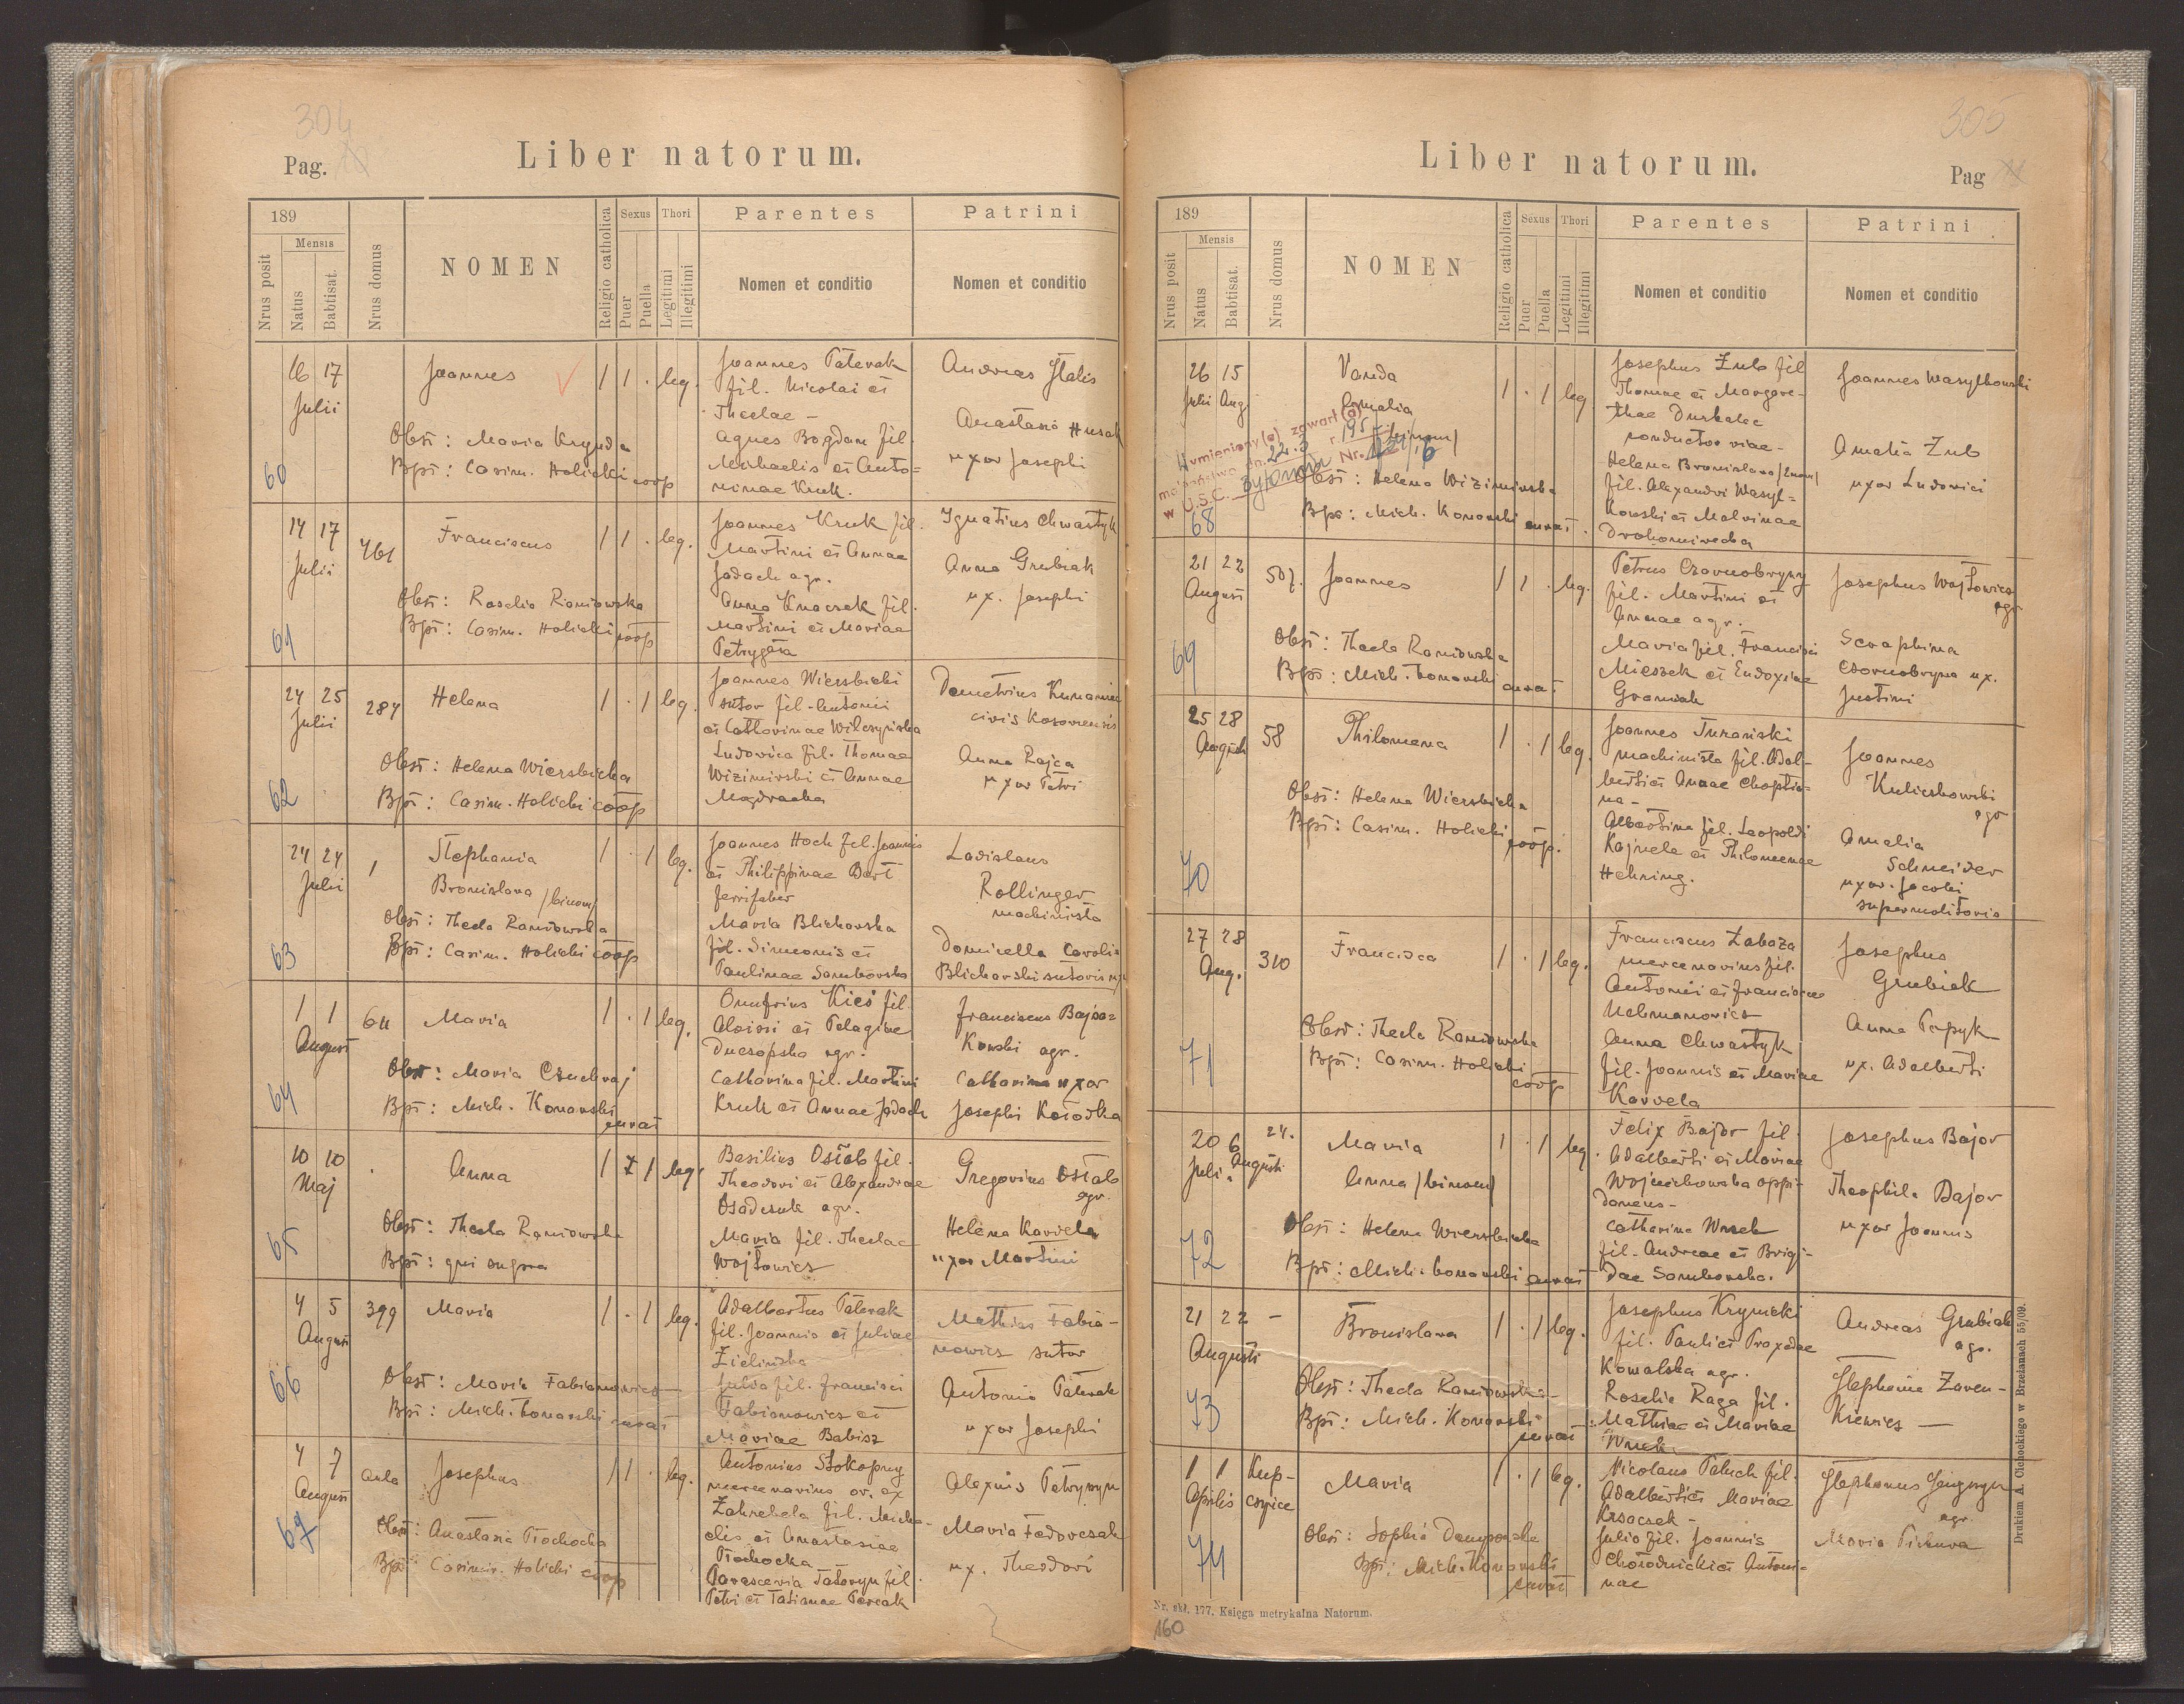 304
Pag.
Liber natorum.
189
Nrus posit
Mensis
Natus
Babtisat.
Nrus domus
NOMEN
Religio catholica
Sexus
Puer
Puella
Thori
Legitimi
Illegitimi
Parentes
Nomen et conditio
Patrini
Nomen et conditio
16 17
Julii
Joannes
1 1 . leg.
Obst: Maria Krynda
Bpt: Casim. Holicki coop
60
Joannes Palewak
fil. Nicolai et
Theclae -
Agnes Bogdan fil.
Michaelis et Anto-
ninae Kruk.
Andreas
Anastasia Husak
uxor Josephi
14 17
Julii
461
Franciscus
1 1 . leg.
Obst: Rosalia
Bpt: Casim. Holicki coop
61
Joannes Kruk fil.
Martini et Annae
Jadach agr.
Anna Knacsek fil.
Martini et Mariae
Ignatius Chwastyk
Anna Grubiak
ux. Josephi
24 25
Julii
284
Helena
1 . 1 leg.
Obst: Helena Wierzbicka
Bpt: Casim. Holicki coop
62
Joannes Wierzbicki
sutor fil. Antonii
et Catharinae Wilczyńska
Ludovica fil. Thomae
Wizimirski et Annae
Demetrius
civis
Anna Rajca
uxor Petri
24 24
Julii
1
Stephania
Bronislava /binom/
1 . 1 leg.
Obst: Thecla Ramiowska
Bpt: Casim. Holicki coop
63
Joannes Hoch fil. Joannis
et Philippinae Bart
ferrifaber
Maria Blicharska
fil. Simeonis et
Paulinae Samborska
Ladislaus
Rollinger
machinista
Domicella Carolis
Blicharski sutoris
1 1
August
64
Maria
1 . 1 leg.
Obst: Maria Czuchraj
Bpt: Mich. Konarski curat
64
Onufrius Kieś fil.
Aloisii et Pelagiae
agr.
Catharina fil. Martini
Kruk et Annae Jadach
Franciscus Bajra-
kowski agr.
Catharina uxor
Josephi
10 10
Maj
Anna
1 1 leg.
Obst: Thecla Ramiowska
Bpt: qui supra
65
Basilius Ostab fil.
Theodori et Alexandrae
Osadczuk agr.
Maria fil. Theclae
Wojtowicz
Gregorius Ostab
agr.
Helena Karvela
uxor Martini
4 5
August
399
Maria
1 . 1 leg.
Obst: Maria Fabianowicz
Bpt: Mich. Konarski curat
66
Adalbertus Palewak
fil. Joannis et Juliae
Zielińska
Julia fil. Francisci
Fabianowicz et
Mariae Babisz
Mathias Fabia-
nowicz sutor
Antonia Palewak
uxor Josephi
4 7
August
aula
Josephus
1 1 . leg.
Obst: Anastasia Tiochocka
Bpt: Casimir. Holicki coop
67
Antonius Stokopny
mercenarius or. ex
Zahrebela fil. Micha-
elis et Anastasiae
Tiochocka
Parascevia Tatoryn fil.
Petri et Tatianae
Alexius Petryszyn
Maria Fedorczak
ux. Theodori
305
Liber natorum.
Pag
189
Nrus posit
Mensis
Natus
Babtisat.
Nrus domus
NOMEN
Religio catholica
Sexus
Puer
Puella
Thori
Legitimi
Illegitimi
Parentes
Nomen et conditio
Patrini
Nomen et conditio
26 15
Julii Aug
Vanda
Amalia
/binom/
1 . 1 leg
Wymieniony(a) zawarł(a)
małżeństwo dn. r. 195
w U.S.C. Bytomiu Nr.
Obst: Helena Wizimirska
Bpt: Mich. Konarski curat.
68
Josephus Zub fil
Thomae et Margare-
thae Durkalec
conductor viae -
Helena Bronislava /binom/
fil. Alexandri Wasyl-
kowski et Malvinae
Drohomirecka
Joannes Wasylkowski
Amalia Zub
uxor Ludovici
21 22
August
507.
Joannes
1 1 . leg.
Obst: Thecla Ramiowska
Bpt: Mich. Konarski curat.
69
Petrus Czornobrywy
fil. Martini et
Annae agr.
Maria fil. Francisci
Mieszek et Eudoxiae
Graniak
Josephus Wojtowicz
agr
Seraphina
Czornobrywa ux.
Justini
25 28
Augusti
58
Philomena
1 . 1 leg.
Obst: Helena Wierzbicka
Bpt: Casim. Holicki coop.
70
Joannes Turański
machinista fil. Adal-
berti et Annae
na -
Albertina fil. Leopoldi
Kajnele et Philomenae
Hehning.
Joannes
Kuliczkowski
agr
Amalia
Schneider
uxor. Jacobi
supermolitoris
27 28
Aug.
310
Francisca
1 . 1 leg.
Obst: Thecla Ramiowska
Bpt: Casim. Holicki coop
71
Franciscus Zabaza
mercenarius fil.
Antonii et Franciscae
Uchmanowicz
Anna Chwastyk
fil. Joannis et Mariae
Karvela
Josephus
Grubiak
Anna Papyk
ux. Adalberti
20 6
Juli. Augusti
24.
Maria
Anna /binom/
1 . 1 leg.
Obst: Helena Wierzbicka
Bpt: Mich. Konarski curat
72
Felix Bajor fil.
Adalberti et Mariae
Wojciechowska oppi-
daneus -
Catharina Wnek
fil. Andreae et Brigi-
dae Samborska.
Josephus Bajor
Theophila Bajor
uxor Joannis
21 22 -
Augusti
Bronislava
1 . 1 leg.
Obst: Thecla Ramiowska
Bpt: Mich. Konarski curat
73
Josephus Krynicki
fil. Pauli et Praxedae
Kowalska agr.
Rosalia Raga fil.
Mathiae et Mariae
Wnek
Andreas Grubiak
agr.
Stephania Zaren-
kiewicz -
1 1
Aprilis
Kup-
czyńce
Maria
1 . 1 leg.
Obst: Sophia
Bpt: Mich. Konarski curat
74
Nicolaus Paluch fil.
Adalberti et Mariae
Krzaczek -
Julia fil. Joannis
Chorodnicki et Antoni-
nae
Stephanus
agr.
Maria
Drukiem A. Cichockiego w Brzeżanach 55/09.
Nr. skł. 177. Księga metrykalna Natorum.
160